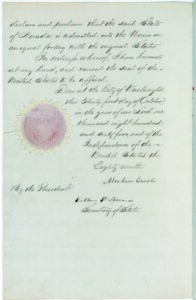 declare and proclaim that the said State
of Nevada is admitted into the Union on
an equal footing with the original States.
In witness whereof, I have hereunto
set my hand, and caused the seal of the
United States to be affixed.
Done at the City of Washington
this thirty first day of October
in the year of our Lord one
thousand eight hundred
and sixty four and of the
Independence of the
United States the
Eighty ninth.
Abraham Lincoln
By the President:
William H. Seward
Secretary of State.